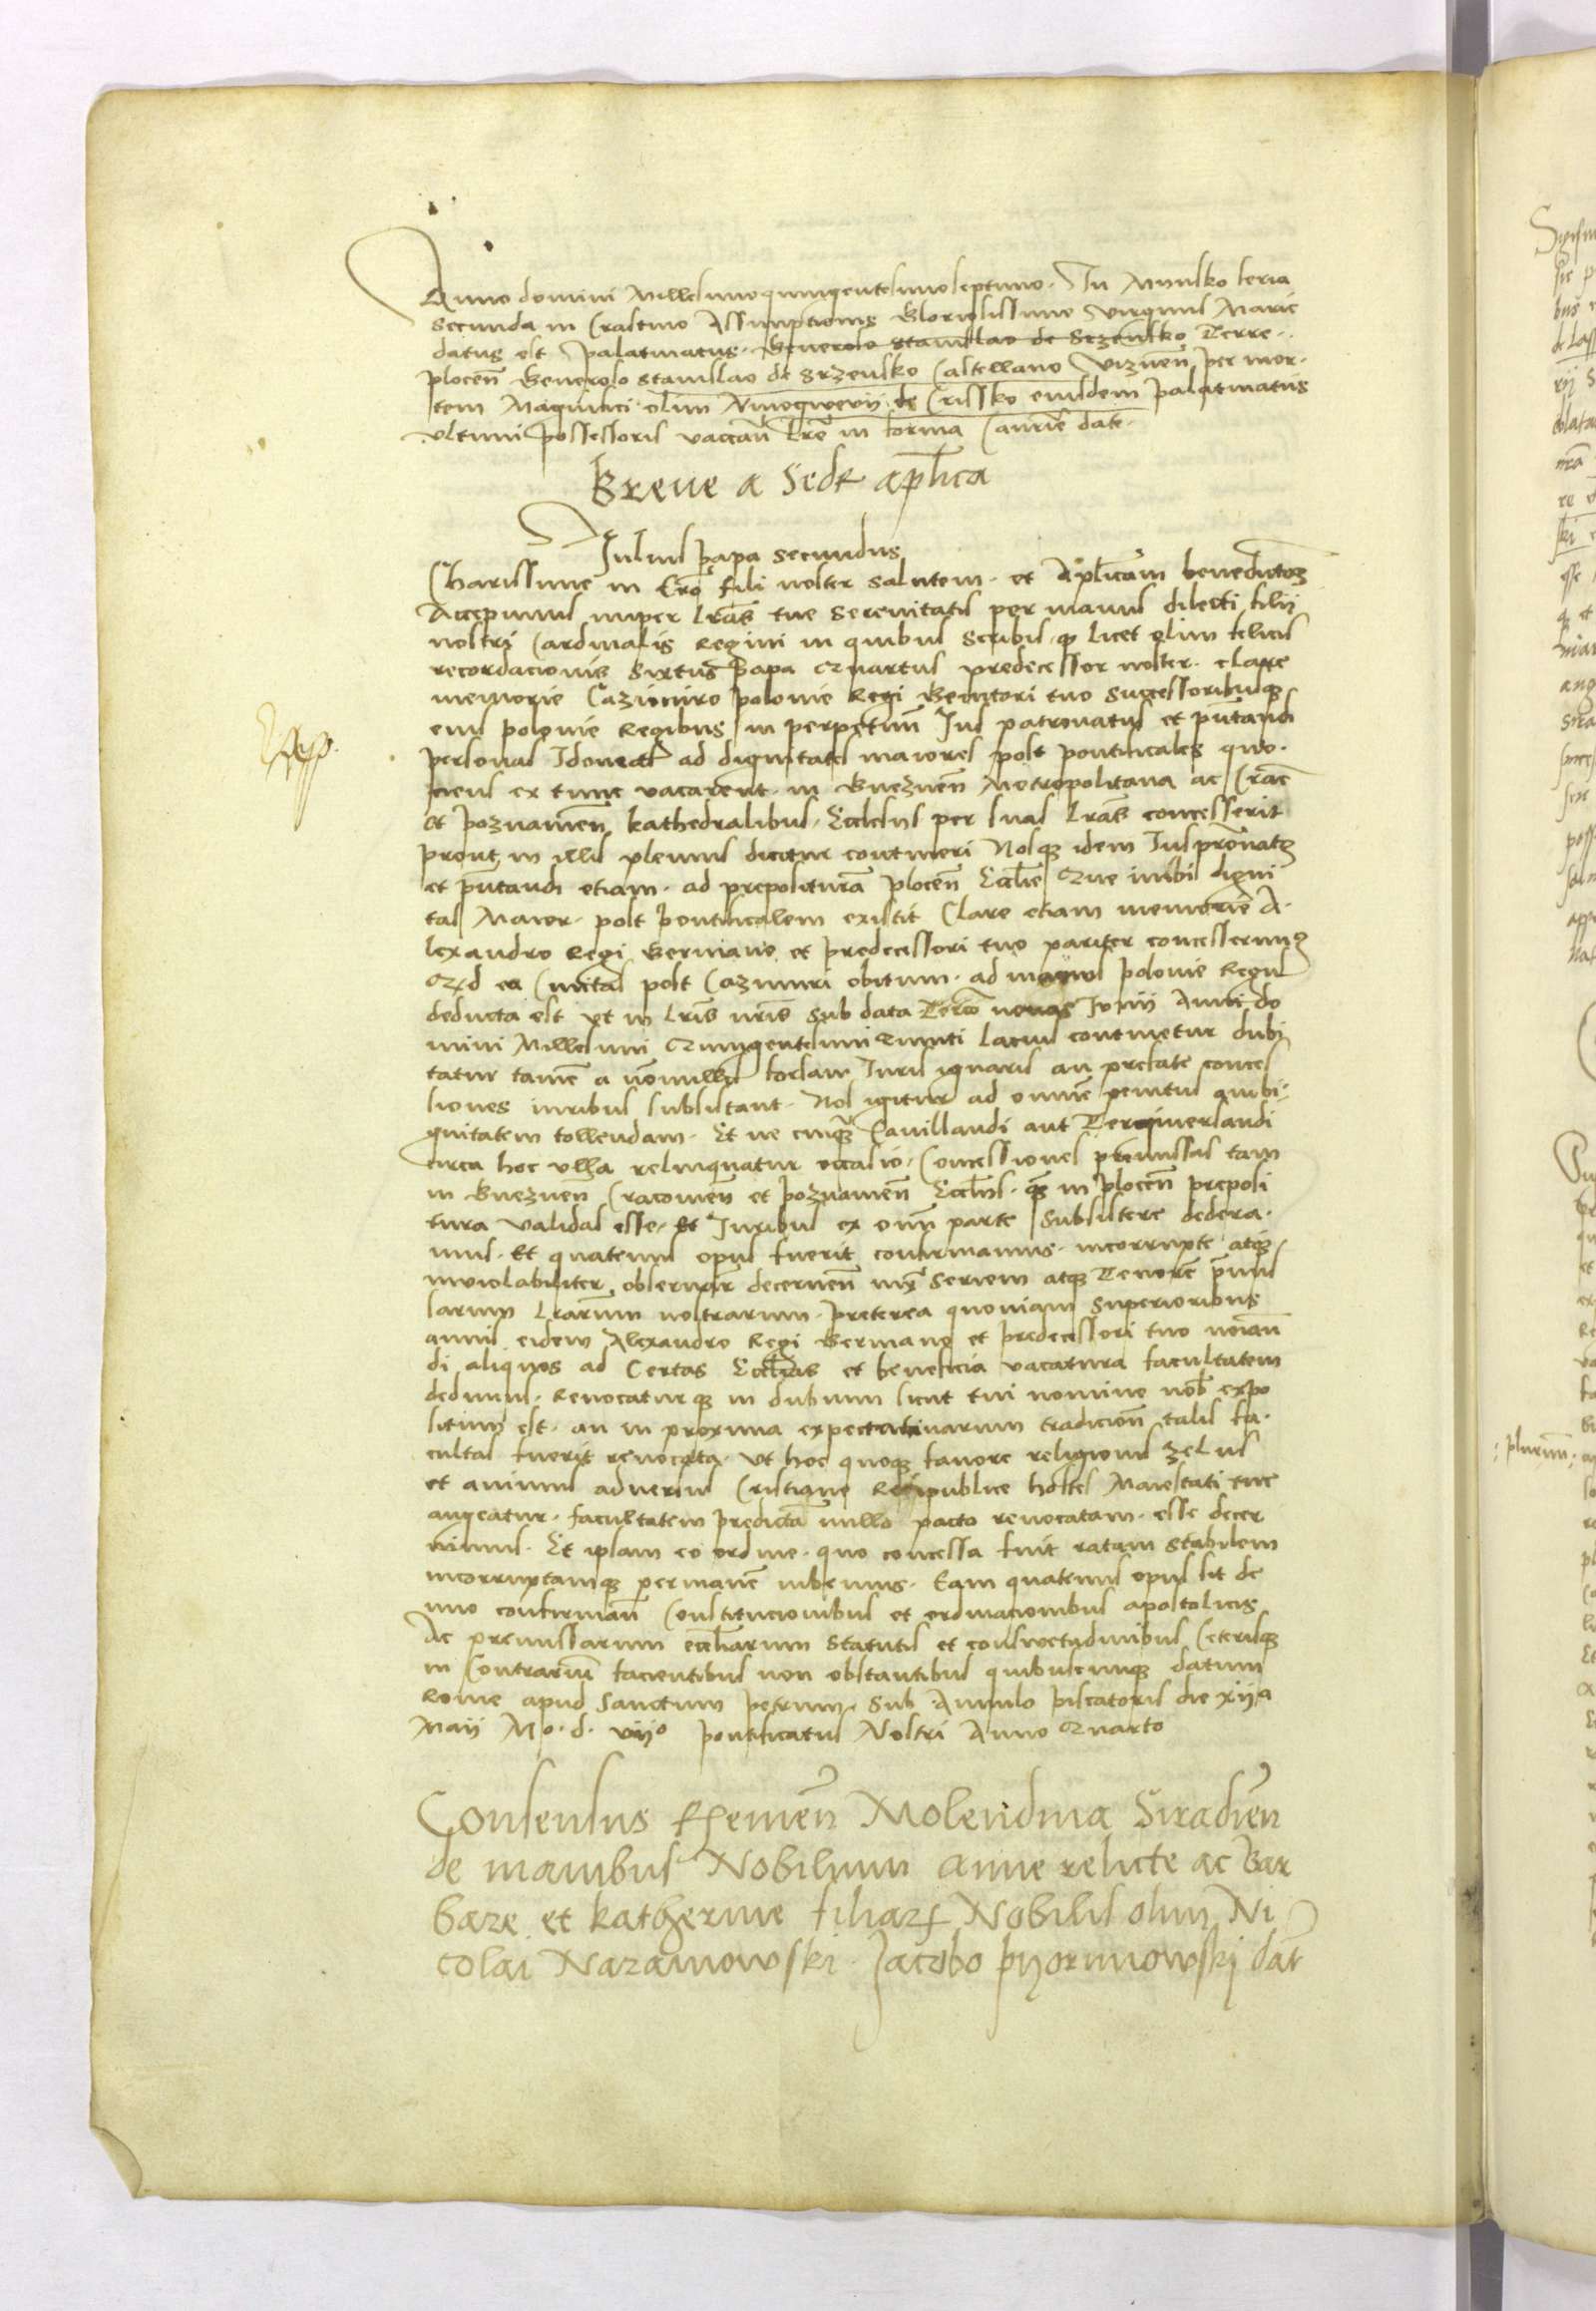 Anno domini Millesimo quingentesimo septimo. In Mynsko feria
Secunda in Crastino Assumptionis Gloriosissime Virginis Marie
datus est Palatinatus. Generoso Stanislao de Srzensko Terre.
plocen̄ Generoso Stanislao de Srzensko Castellano Viznen̄ per mor-
tem Magnifici olim de Crissko eiusdem palatinatus
vltimi possessoris vaccan̄ Lr̄e in forma date.
Breue a Sede ap̄lica
Julius papa secundus
Charissime in Cr̄o fili noster salutem. et Apl̄icam benedictōȝ
Accepimus nuper Lr̄as tue Serenitatis per manus dilecti filij
nostri Cardinalis Regini in quibus scribis. ꝙ licet olim felicis
recordacionis Sixtus papa Quartus predecessor noster. clare
memorie Cazimiro polonie Regi Genitori tuo Successoribusqꝫ
eius polonie Regibus in perpetuū Jus patronatus et p̄ntandi
personas Idoneas ad dignitates maiores post pontificales quo-
ciens ex tunc vacarent. in Gneznen̄ Metropolitana ac Crac̄
et poznanien̄ kathedralibus. Ecclesiis per suas Lr̄as concesserit
prout in illis plenius dicitur contineri Nosqꝫ idem Juspr̄onatȝ
et p̄ntandi etiam. ad preposituram plocen̄ Eccl̄ie Que inibi digni
tas Maior. post pontificalem existit Clare etiam memorie A-
lexandro Regi Germano et predecessori tuo pariter concesserimꝰ
Qd̄ ea post Cazimiri obitum. ad polonie Regni
deducta est vt in Lr̄is nr̄is Sub data Tercio nonas Junij Anni do
mini Millesimi Quingentesimi Quinti Lacius continetur dubi
tatur tamē a nōnullis forsan Juris ignaris an prefate conces
siones iuribus subsistant. Nos igitur ad omnē penitus ambi-
guitatem tollendam. Et ne cuiqꝫ Cauillandi aut Tergiuersandi
circa hoc vlla relinquatur occasio. Concessiones premissas tam
in Gneznen̄ Cracouien̄ et poznanien̄ Eccl̄iis. qꝫ in plocen̄ preposi
tura validas esse. Et Juribus ex omī parte subsistere
mus. Et quatenus opus fuerit confirmamus. incorrupte atqꝫ
inuiolabiliter obseruari decernen̄ iuxͣ Seriem atqꝫ Tenorē
sarum Lr̄arum nostrarum. preterea quoniam Superioribus
annis eidem Alexandro Regi Germano et predecessori tuo noīan
di aliquos ad Certas Eccl̄ias et beneficia vacatura facultatem
dedimus. Reuocaturqꝫ in dubium sicut tui nomine nob̄ expo
situm est. an in proxima expectatiuarum tradicion̄ talis fa-
cultas fuerit reuocata. vt hoc quoqꝫ fauore religionis zelus
et animus aduersus Cristiane Reipublice hostes Maiestati tue
augeatur. facultatem predictā nullo pacto reuocatam. esse decer
nimus. Et ipsam eo ordine. quo concessa fuit ratam Stabilem
incorruptamqꝫ permanē iubemus. Eam quatenus opus sit de
nuo confirman̄ Constitucionibus et ordinacionibus apostolicis
Ac premissarum eccl̄iarum Statutis et consuetudinibus Ceterisqꝫ
in Contrariū facientibus non obstantibus quibuscunqꝫ datum
Rome apud Sanctum petrum. Sub Annulo piscatoris die xijᵃ
Maij Mo. d. vijᵒ pontificatus Nostri Anno Quarto
Consensus Molendina Siradien̄
de manibus Nobilium Anne relicte ac Bar
bare et katherine filiarꝫ Nobilis olim Ni
colai Naramowski. Jacobo pyornowskj dat̄
: plurimū :